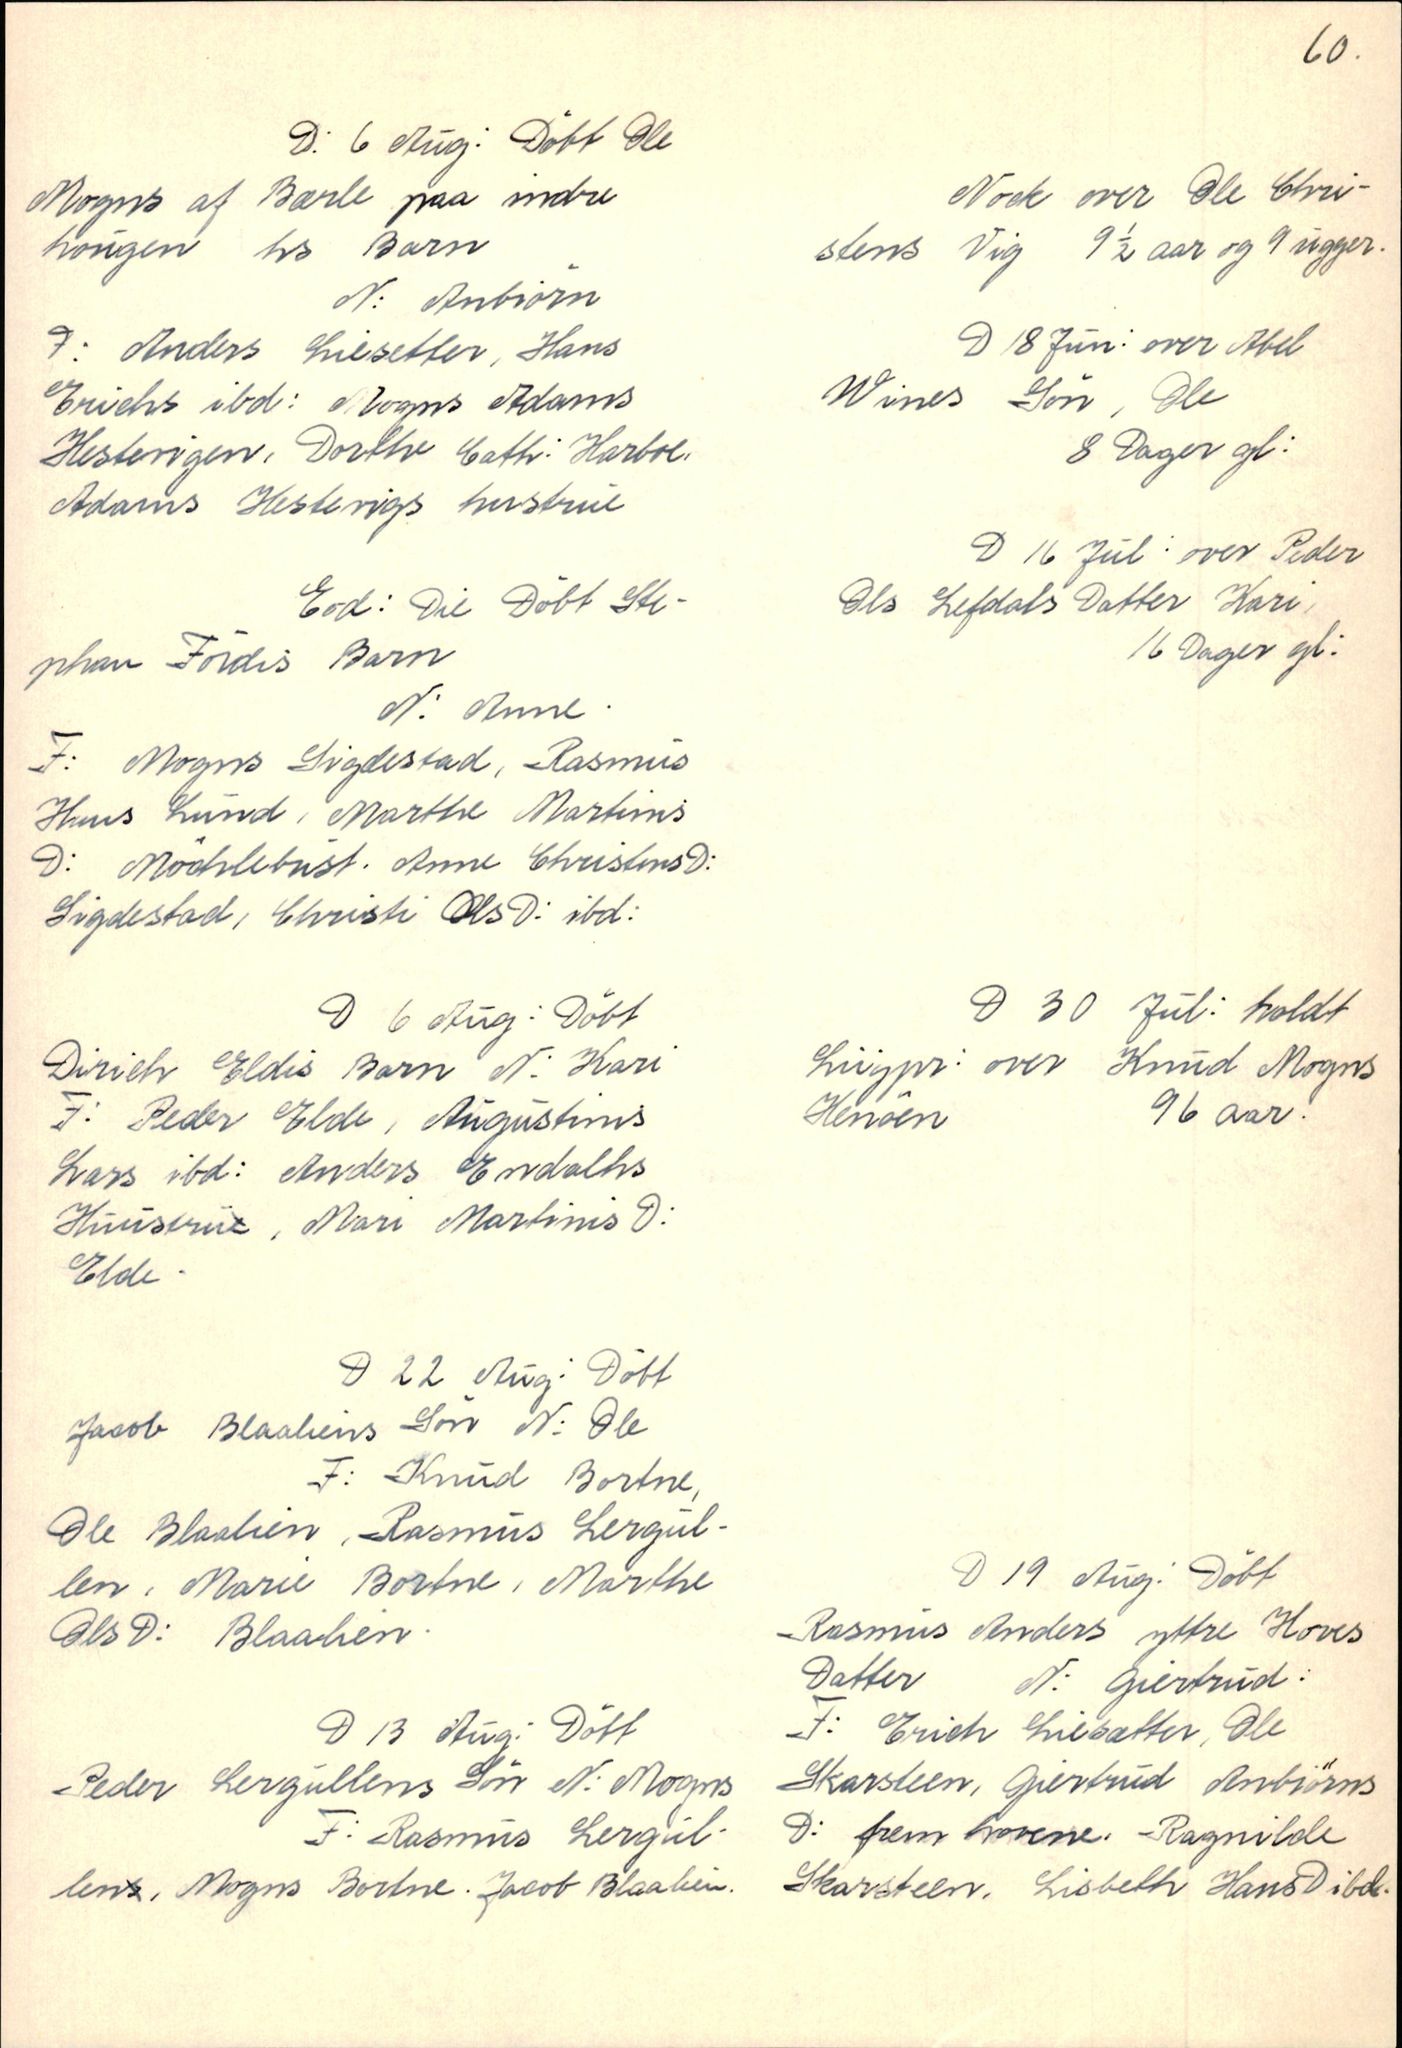 60.
D: 6 Aug: Döbt Ole
Mogns af Bærle paa indre
hougen hs Barn
N: Anbiörn
F: Anders Liesetter, Hans
Erichs ibd: Mogns Adams
Hestevigen, Dorthe Cath: Harboe,
Adams Hestevigs hustrue
Eod: Die Döbt Ste-
phan Fördis Barn
N: Anne.
F: Mogns Sigdestad, Rasmus
Hans Lund, Marthe Martins
D: Möchlebust. Anne ChristensD:
Sigdestad, Christi OlsD: ibd:
D 6 Aug: Döbt
Dirich Eldis Barn N: Kari
F: Peder Elde, Augustinus
Lars ibd: Anders Endalhs
Huustrue, Mari Martinis D:
Elde.
D 22 Aug: Döbt
Jacob Blaaliens Sön N: Ole
F: Knud Bortne,
Ole Blaalien, Rasmus Lergul-
len, Marie Bortne, Marthe
OlsD: Blaalien.
D 13 Aug: Döbt
Peder Lergullens Sön N: Mogns
F: Rasmus Lergul-
lens, Mogns Bortne. Jacob Blaalien.
Nock over Ole Chri-
stens Vig 9 1/2 aar og 9 ugger.
D 18 Jun: over Abel
Wines Sön, Ole
8 Dager gl:
D 16 Jul: over Peder
Ols Lefdals Datter Kari,
16 Dager gl:
D 30 Jul: holdt
Liigpr: over Knud Mogns
Henöen 96 aar.
D 19 Aug: Döbt
Rasmus Anders yttre Hoves
Datter N: Giertrud:
F: Erich Liesætter, Ole
Skarsteen, Giertrud Anbiörns
D: frem hovene. Ragnilde
Skarsteen, Lisbeth HansD ibd.